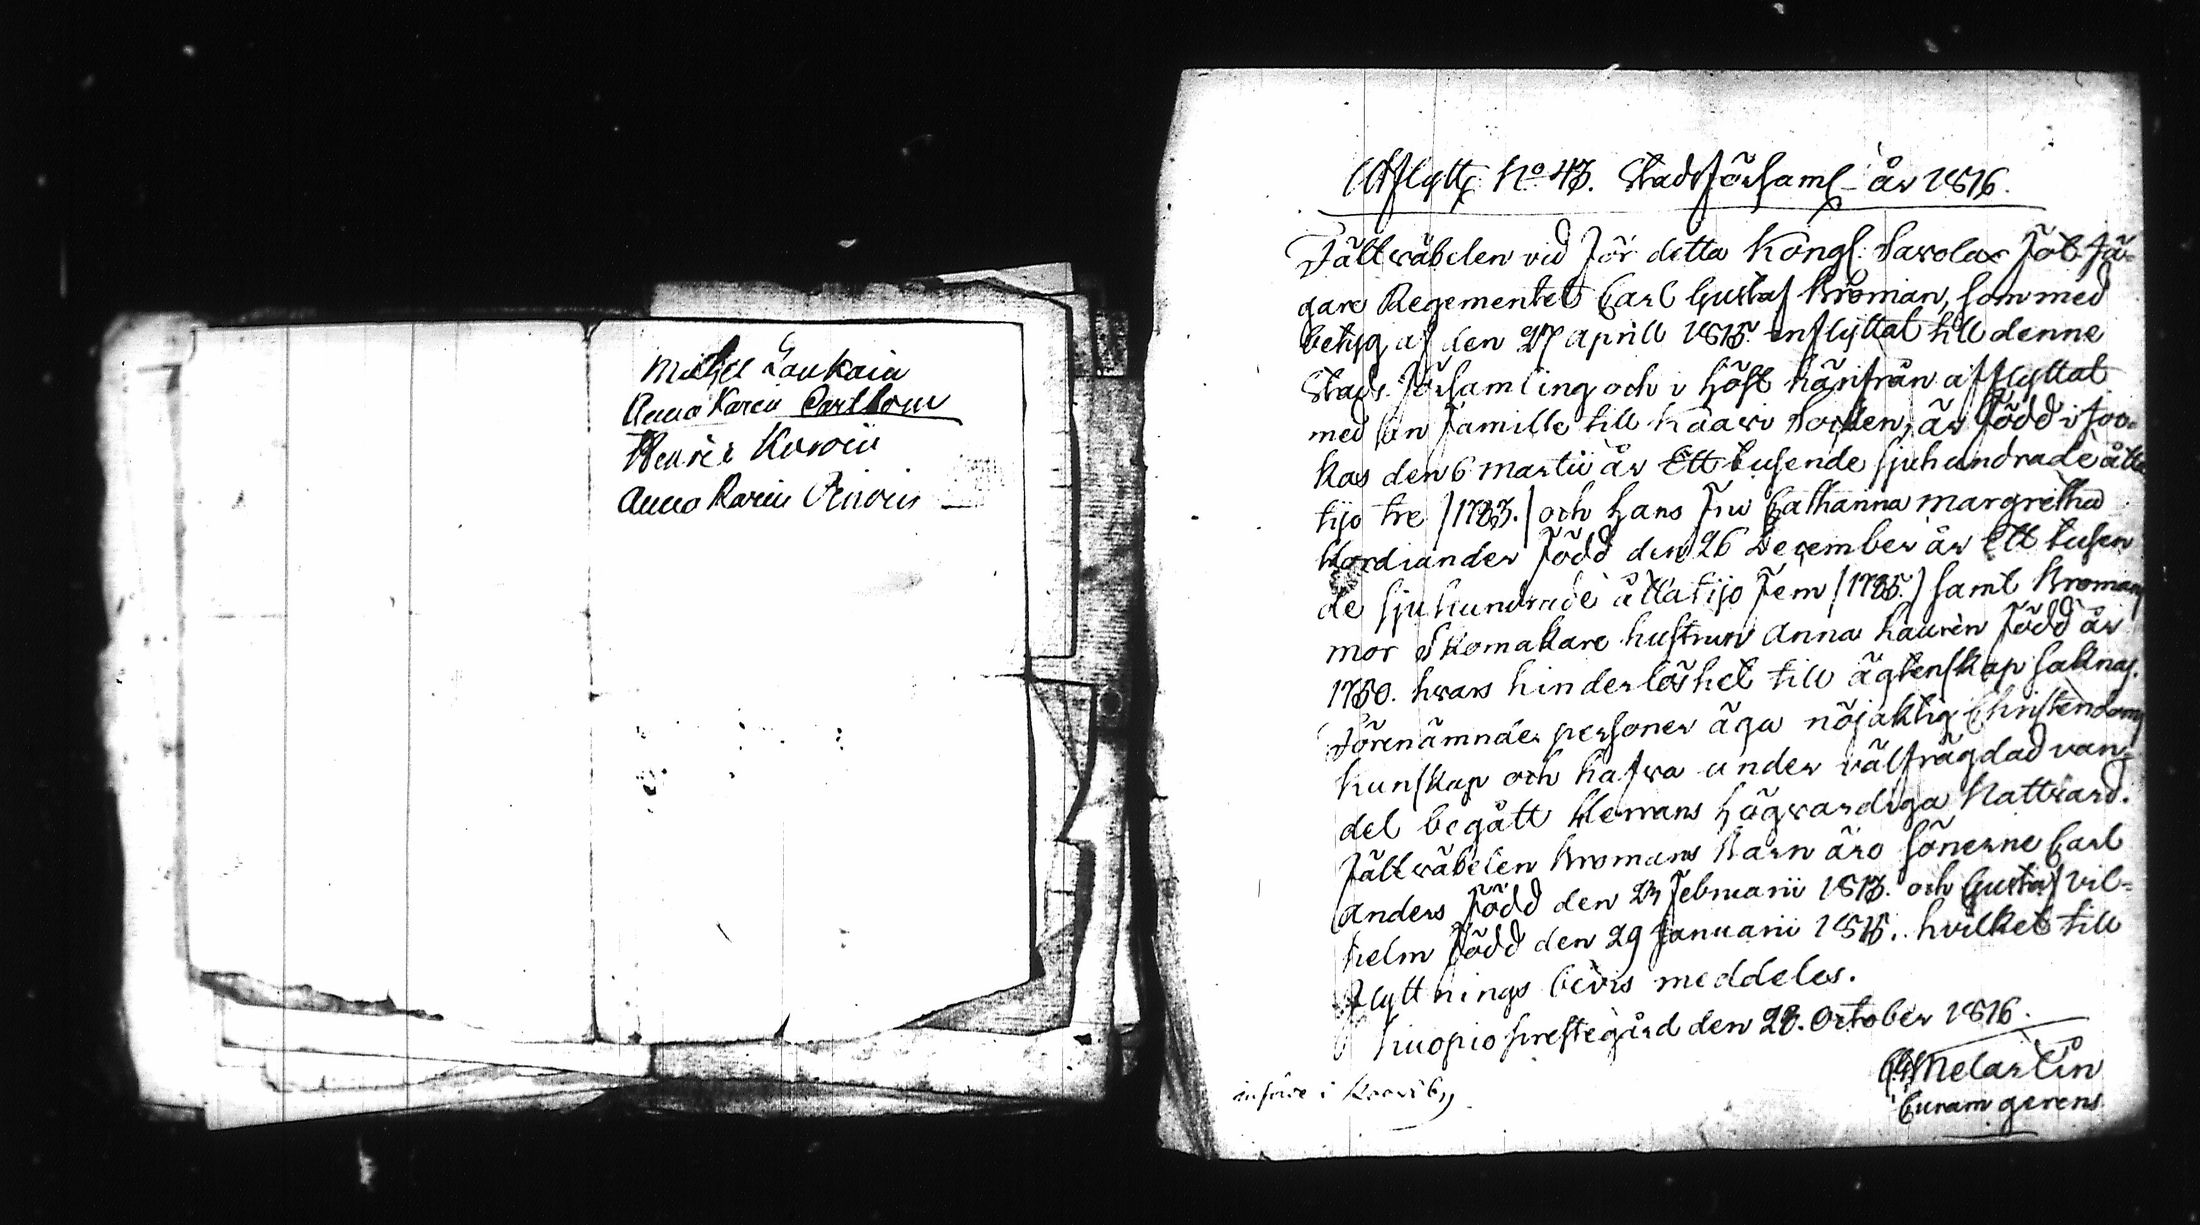 Michel Laukain
Anna Karin Carlbom
Henric Kuroin
Anna Karin
Utflytt. No 43. Stads församl. år 1816.
Fältväbelen vid för detta Kongl. Savolax Fot Jä-
gare Regementet Carl Gustaf Kroman, som med
betyg af den 27 Aprill 1815 inflyttat till denne
Stads församling och i höst härifrån afflyttat
med sin Famille till Kaavi Socken, är född i Joo-
kas den 6 Martii år Ett tusende sjuhundrade åtta
tijo tre /1783./ och hans Fru Catharina Margretha
Nordlander född den 26 December år Ett tusen
de sjuhundrade åttatijo fem /1785./ samt Kromans
mor Skomakare hustrun Anna Laurén född år
1750. hvars hinderlöshet till ägtenskap saknas.
Förenämnde personer äga nöjaktig Christendoms
kunskap och hafva under välfrägdad van-
del begått Herrans Högvärdiga Nattvard.
Fältväbelen Kromans Barn äro Sönerne Carl
Anders född den 23 Februarii 1813. och Gustaf Vil-
helm född den 29 Januarii 1815. hvilket till
flyttnings bevis meddeles.
Kuopio prestegård den 28. October 1816.
Melartin
Curam gerens
införde i Kaaviby